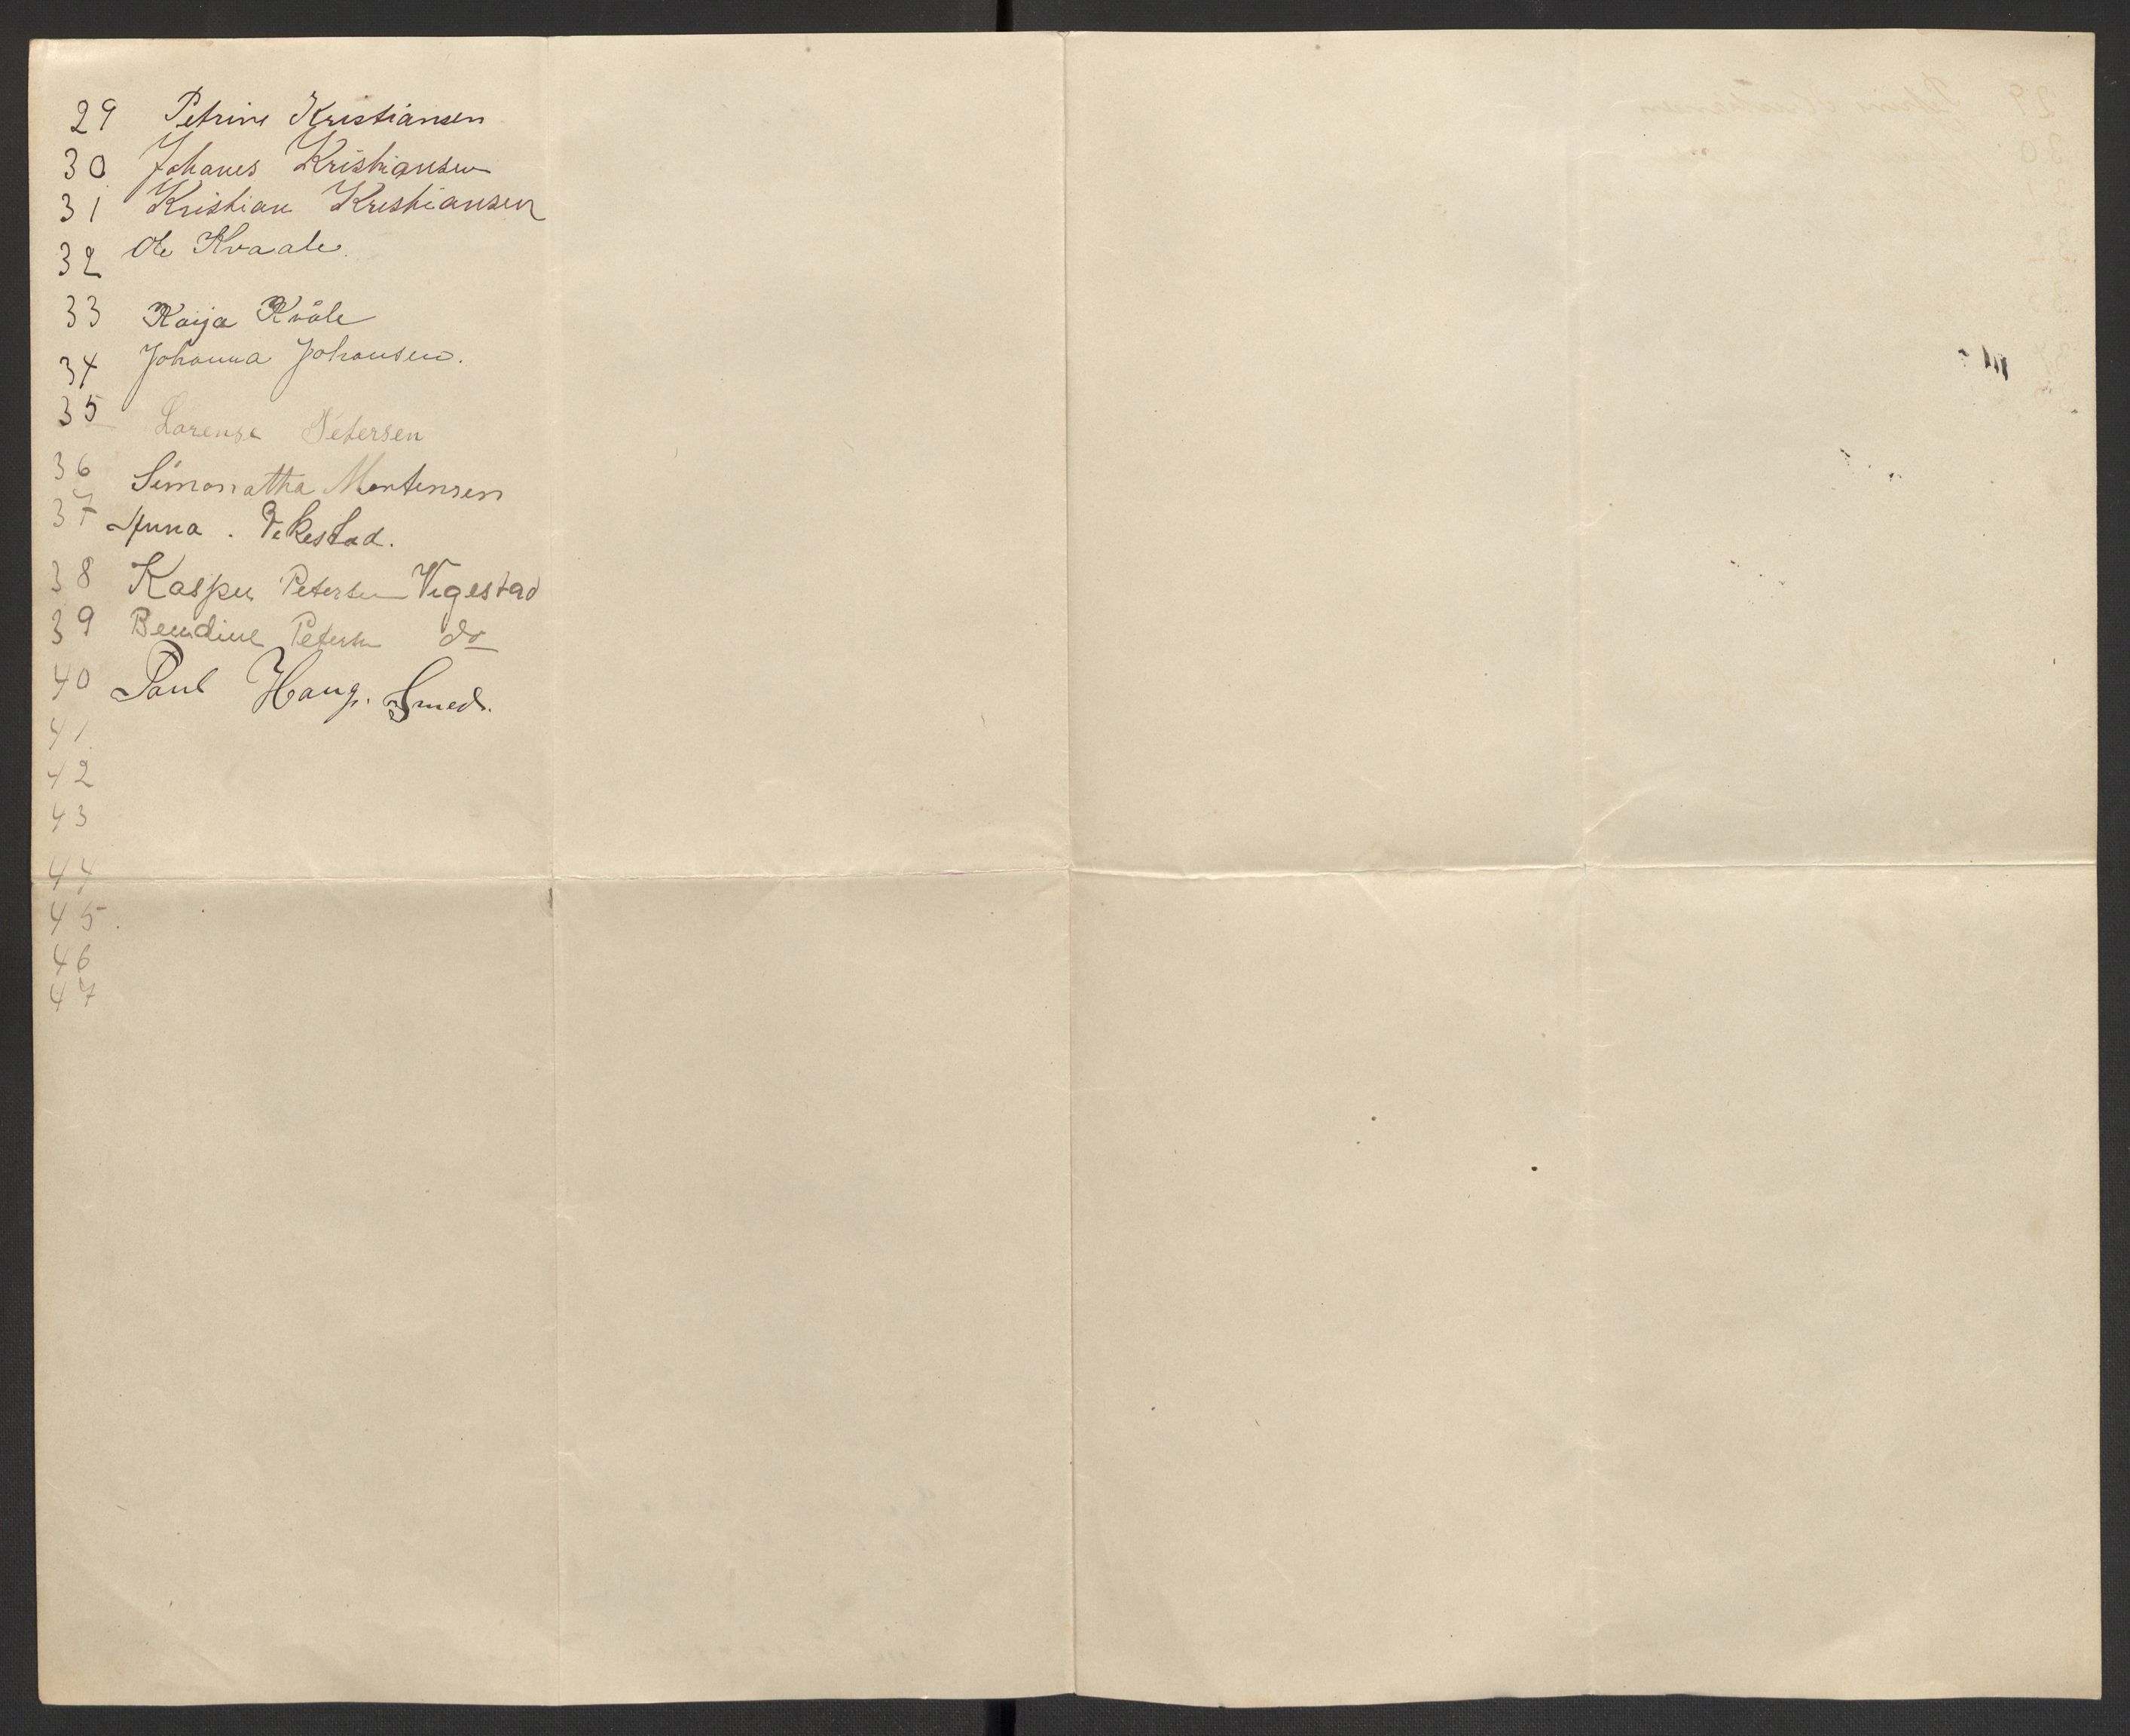 29 Petrine Kristiansen
30 Johanes Kristiansen
31 Kristian Kristiansen
32 Ole Kvaale.
33 Kaija Kvåle
34 Johanna Johansen.
35 Lorense Petersen
36 Simonatha Mortensen
37 Anna . Vekestad.
38 Kasper Petersen Vegestad
39 Bendine Petersen do
40 Paul Haug. Smed.
41
42
43
44
45.
46
47